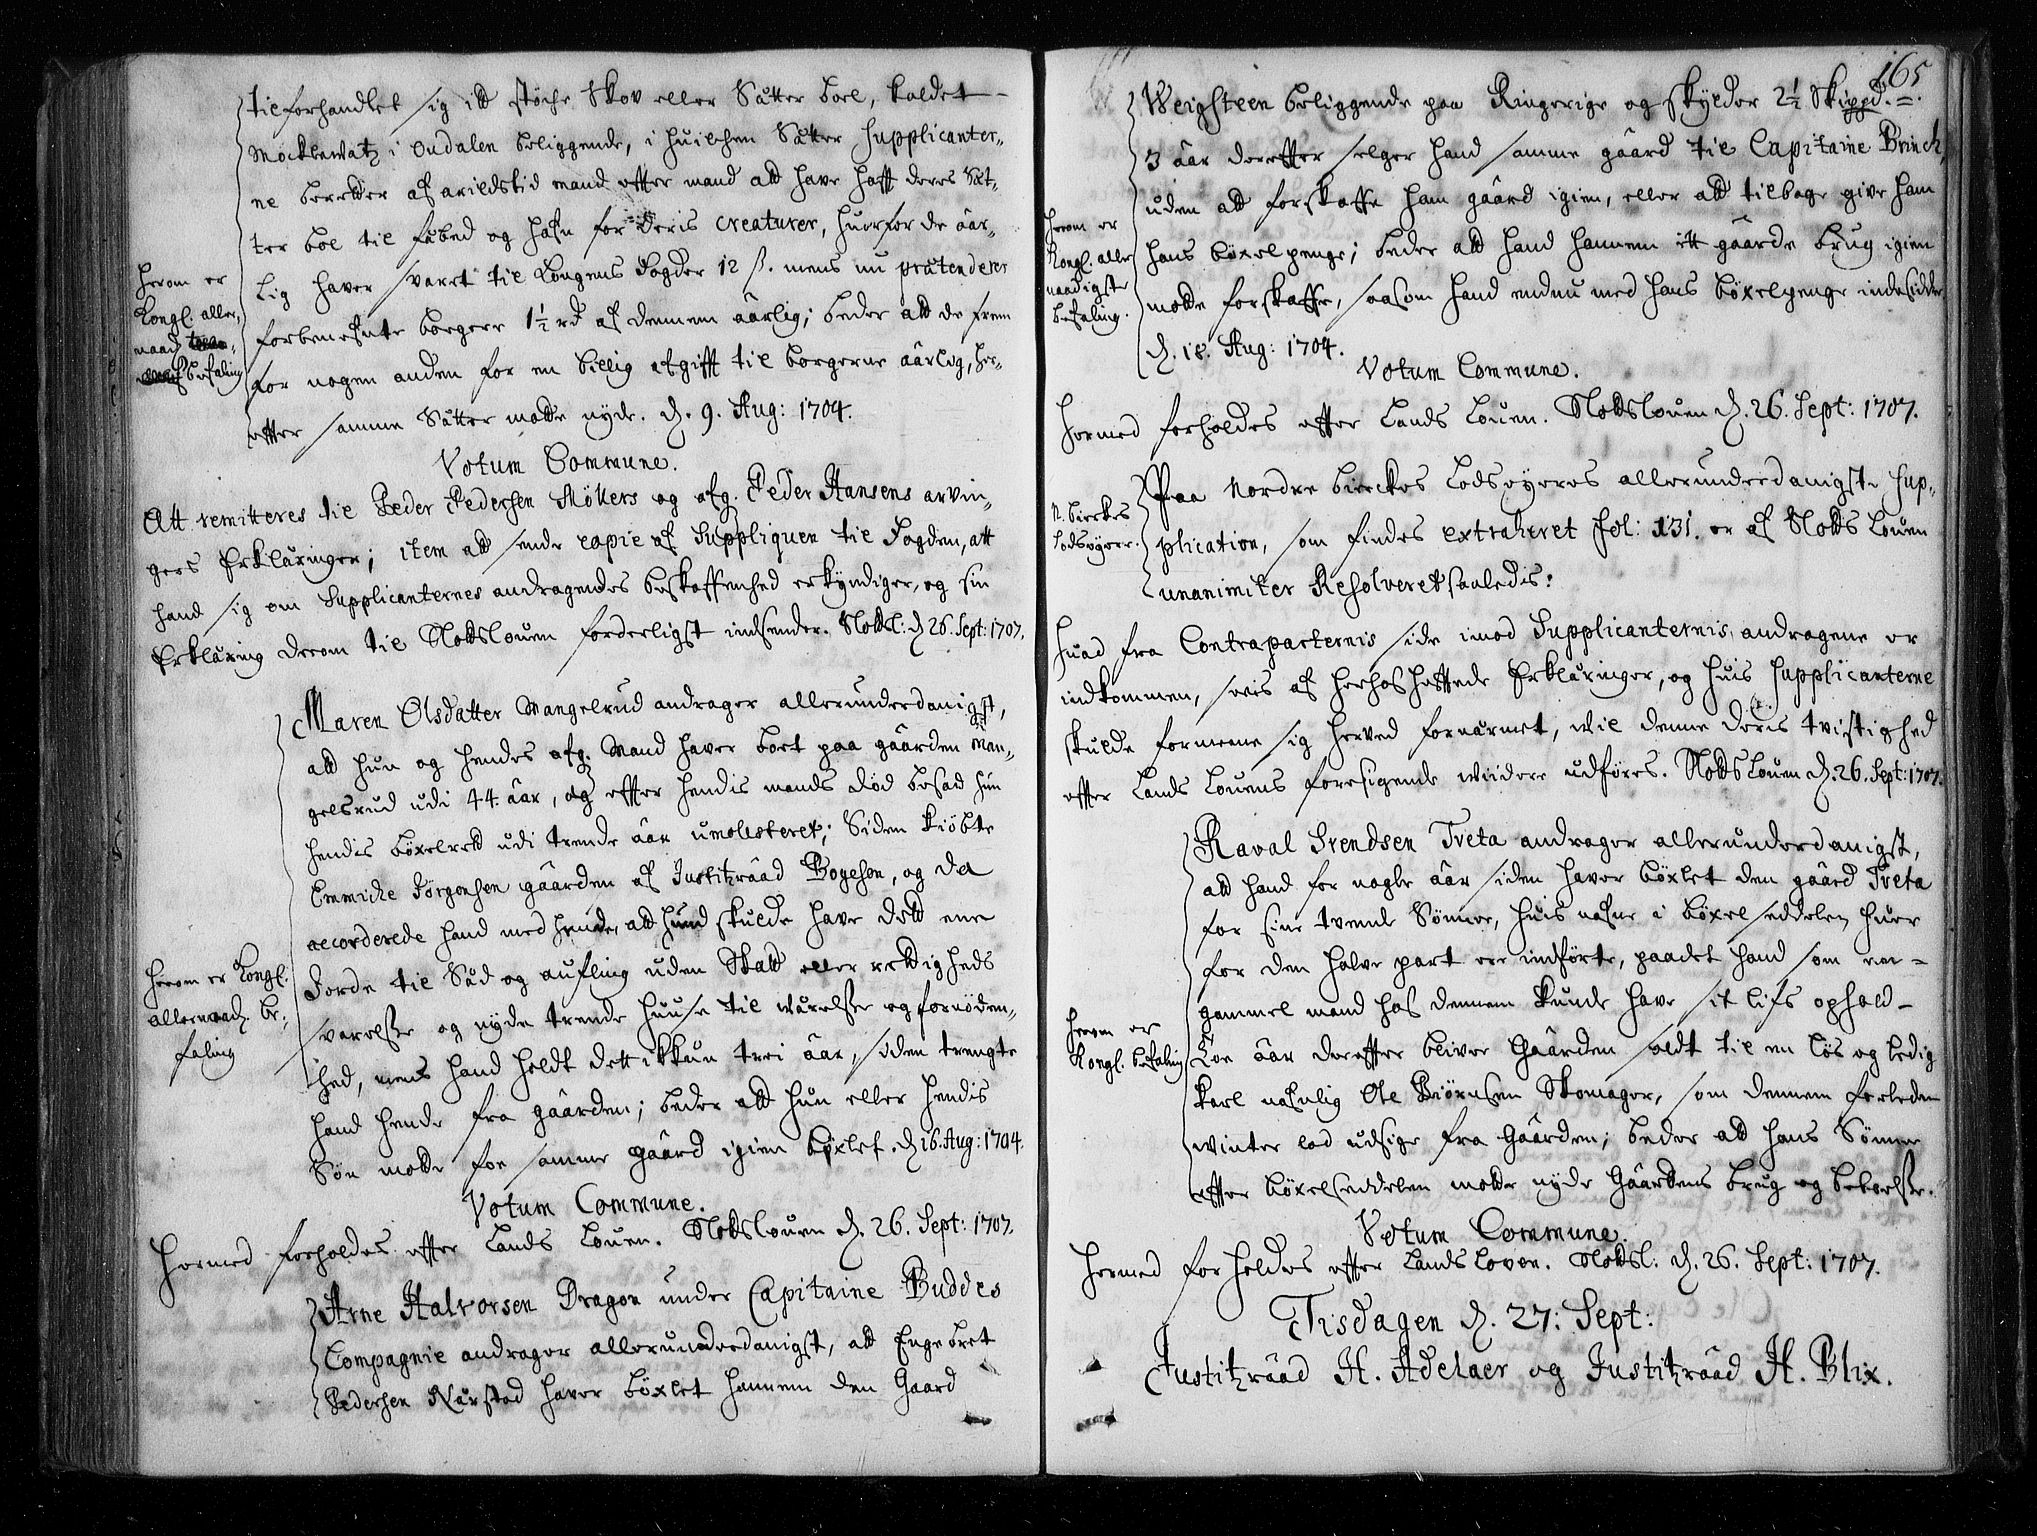 tilforhandlet sig itt støche Skov eller Sætter boel, kaldet
Mockevatz i Oudalen beliggende, i huilchen Sætter Supplicanter-
ne beretter af arilds tid mand efter mand att have hafft deres Sæt-
ter boel til fæbed og hafn for deris Creaturer, huorfor de aar-
lig haver svaret til Kongens Fogder 12 s. mens nu prætenderer
forbenefnte borgere 1½ rd af dennem aarlig; beder att de frem
for nogen anden for en billig afgifft til borgerne aarlig, her-
efter samme Sætter motte nyde. d. 9. Aug: 1704.
Herom er
Kongl. aller-
naad
befaling
Votum Commune.
Att remitteres til Peder Pedersen Møllers og afg. Peder Hansens arvin-
gers Erklæringer; item att sende copie af Suppliquen til Fogden, att
hand sig om Supplicanternes andragendes beskaffenhed erkyndiger, og sin
Erklæring derom til Slottslouen forderligst indsender. Slottsl: d. 26. Sept: 1707.
Maren Olsdatter Mangelrud andrager allerunderdanigst,
att hun og hendes afg. Mand haver boet paa gaarden Man-
gelsrud udi 44 aar, og effter hendis mands død besad hun
hendis bøxelrett udi trende aar umolesteret; Siden kiøbte
Emmiche Jørgensen gaarden af Justitzraad Bogesøn, og da
accorderede hand med hende, att hun skulde have dett ene
Jorde til Sæd og aufling uden Skatt eller rettigheds
svarelsse og nyde trende huuse til værelsse og fornøden-
hed, mens hand holdt dett ikkun trei aar, siden trengte
hand hende fra gaarden; beder att hun eller hendis
Søn motte foe samme gaard igien bøxlet. d. 16. Aug: 1704.
Herom er Kongl.
allernaad. be-
faling
Votum Commune.
Hermed forholdes efter Lands Louen. Slottslouen d. 26. Sept: 1707.
Arne Halvorsen Dragon under Capitaine Buddes
Compagnie andrager allerunderdanigst, att Engebret
Pedersen Nærstad haver bøxlet hannem den Gaard
165
Weigsteen beliggende paa Ringerige og skylder 2½ Skippd.
3 aar derefter selger hand samme gaard til Capitaine Brinck,
uden att forskaffe ham gaard igien, eller att tilbage give ham
hans bøxelpenge; beder att hand hannem itt gaarde brug igien
motte forskaffe, saasom hand endnu med hans bøxelpenge indesidder
d. 18. Aug: 1704.
Herom er
Kongl. aller
naadigste
befaling.
Votum Commune.
Hermed forholdes efter Lands Louen. Slottslouen d. 26. Sept: 1707.
Paa Nordre bierckes Lodseyeres allerunderdanigste Sup-
plication, som findes extraheret fol: 131. er af Slotts Louen
unanimiter Resolveret saaledis:
N. bierkes
Lodseyere.
Huad fra Contraparternis side imod Supplicanternis andragene er
indkommen, sees af herhoshefftede Erklæringer, og huis Supplicanterne
skulde formeene sig herved fornærmet, vil denne deris tvistighed
effter Lands Louens foresigende widere udføres. Slotts Louen d. 26. Sept: 1707.
Raval Svendsen Tveta andrager allerunderdanigst,
att hand for nogle aar siden haver bøxlet den gaard Tveta
for sine tvende Sønner, huis nafne i bøxel seddelen huer
for den halve part ere indførte, paadet hand som en
gammel mand hos dennem kunde have sit lifs ophold
Toe aar derefter bliver Gaarden soldt til en løs og ledig
karl nafnlig Ole Biørnsen Skomager, som dennem forleden
winter lod udsige fra Gaarden; beder att hans Sønner
effter bøxelseddelen motte nyde Gaardens brug og bekoelsse.
Herom er
Kongl. befaling
Votum Commune.
Hermed forholdes efter Lands Loven. Slottsl: d. 26. Sept: 1707.
Tisdagen d. 27: Sept:
Justitzraad H. Adelaer og Justitzraad H. Blix.